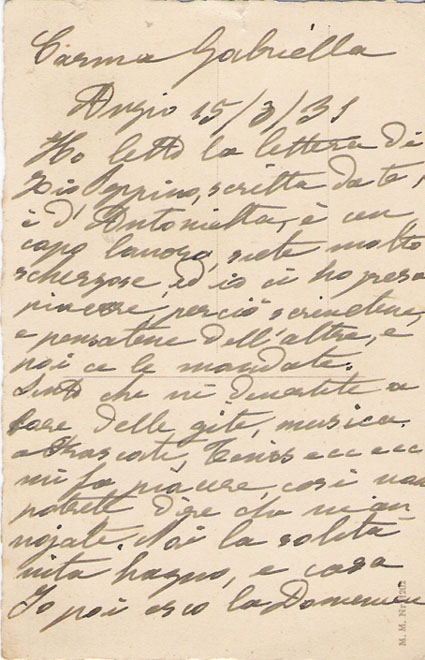 Carma Gabriella
Anzio 15/3/31
Ho letto la lettera di
Zio Peppino, scritta da te,
e d'Antonietta, è un
capo lavoro, siete molto
scherzose, ed io ci ho preso
piacere, perciò scrivetene,
e pensatene dell'altre, e
poi ce le mandate.
Sento che vi divertite a
fare delle gite, musica.
Tennis ecc ecc
mi fa piacere, così non
potrete dire che vi an
noiate. Noi la solita
vita bagno, e casa
Io poi esco la Domenica
M. M. Nr.